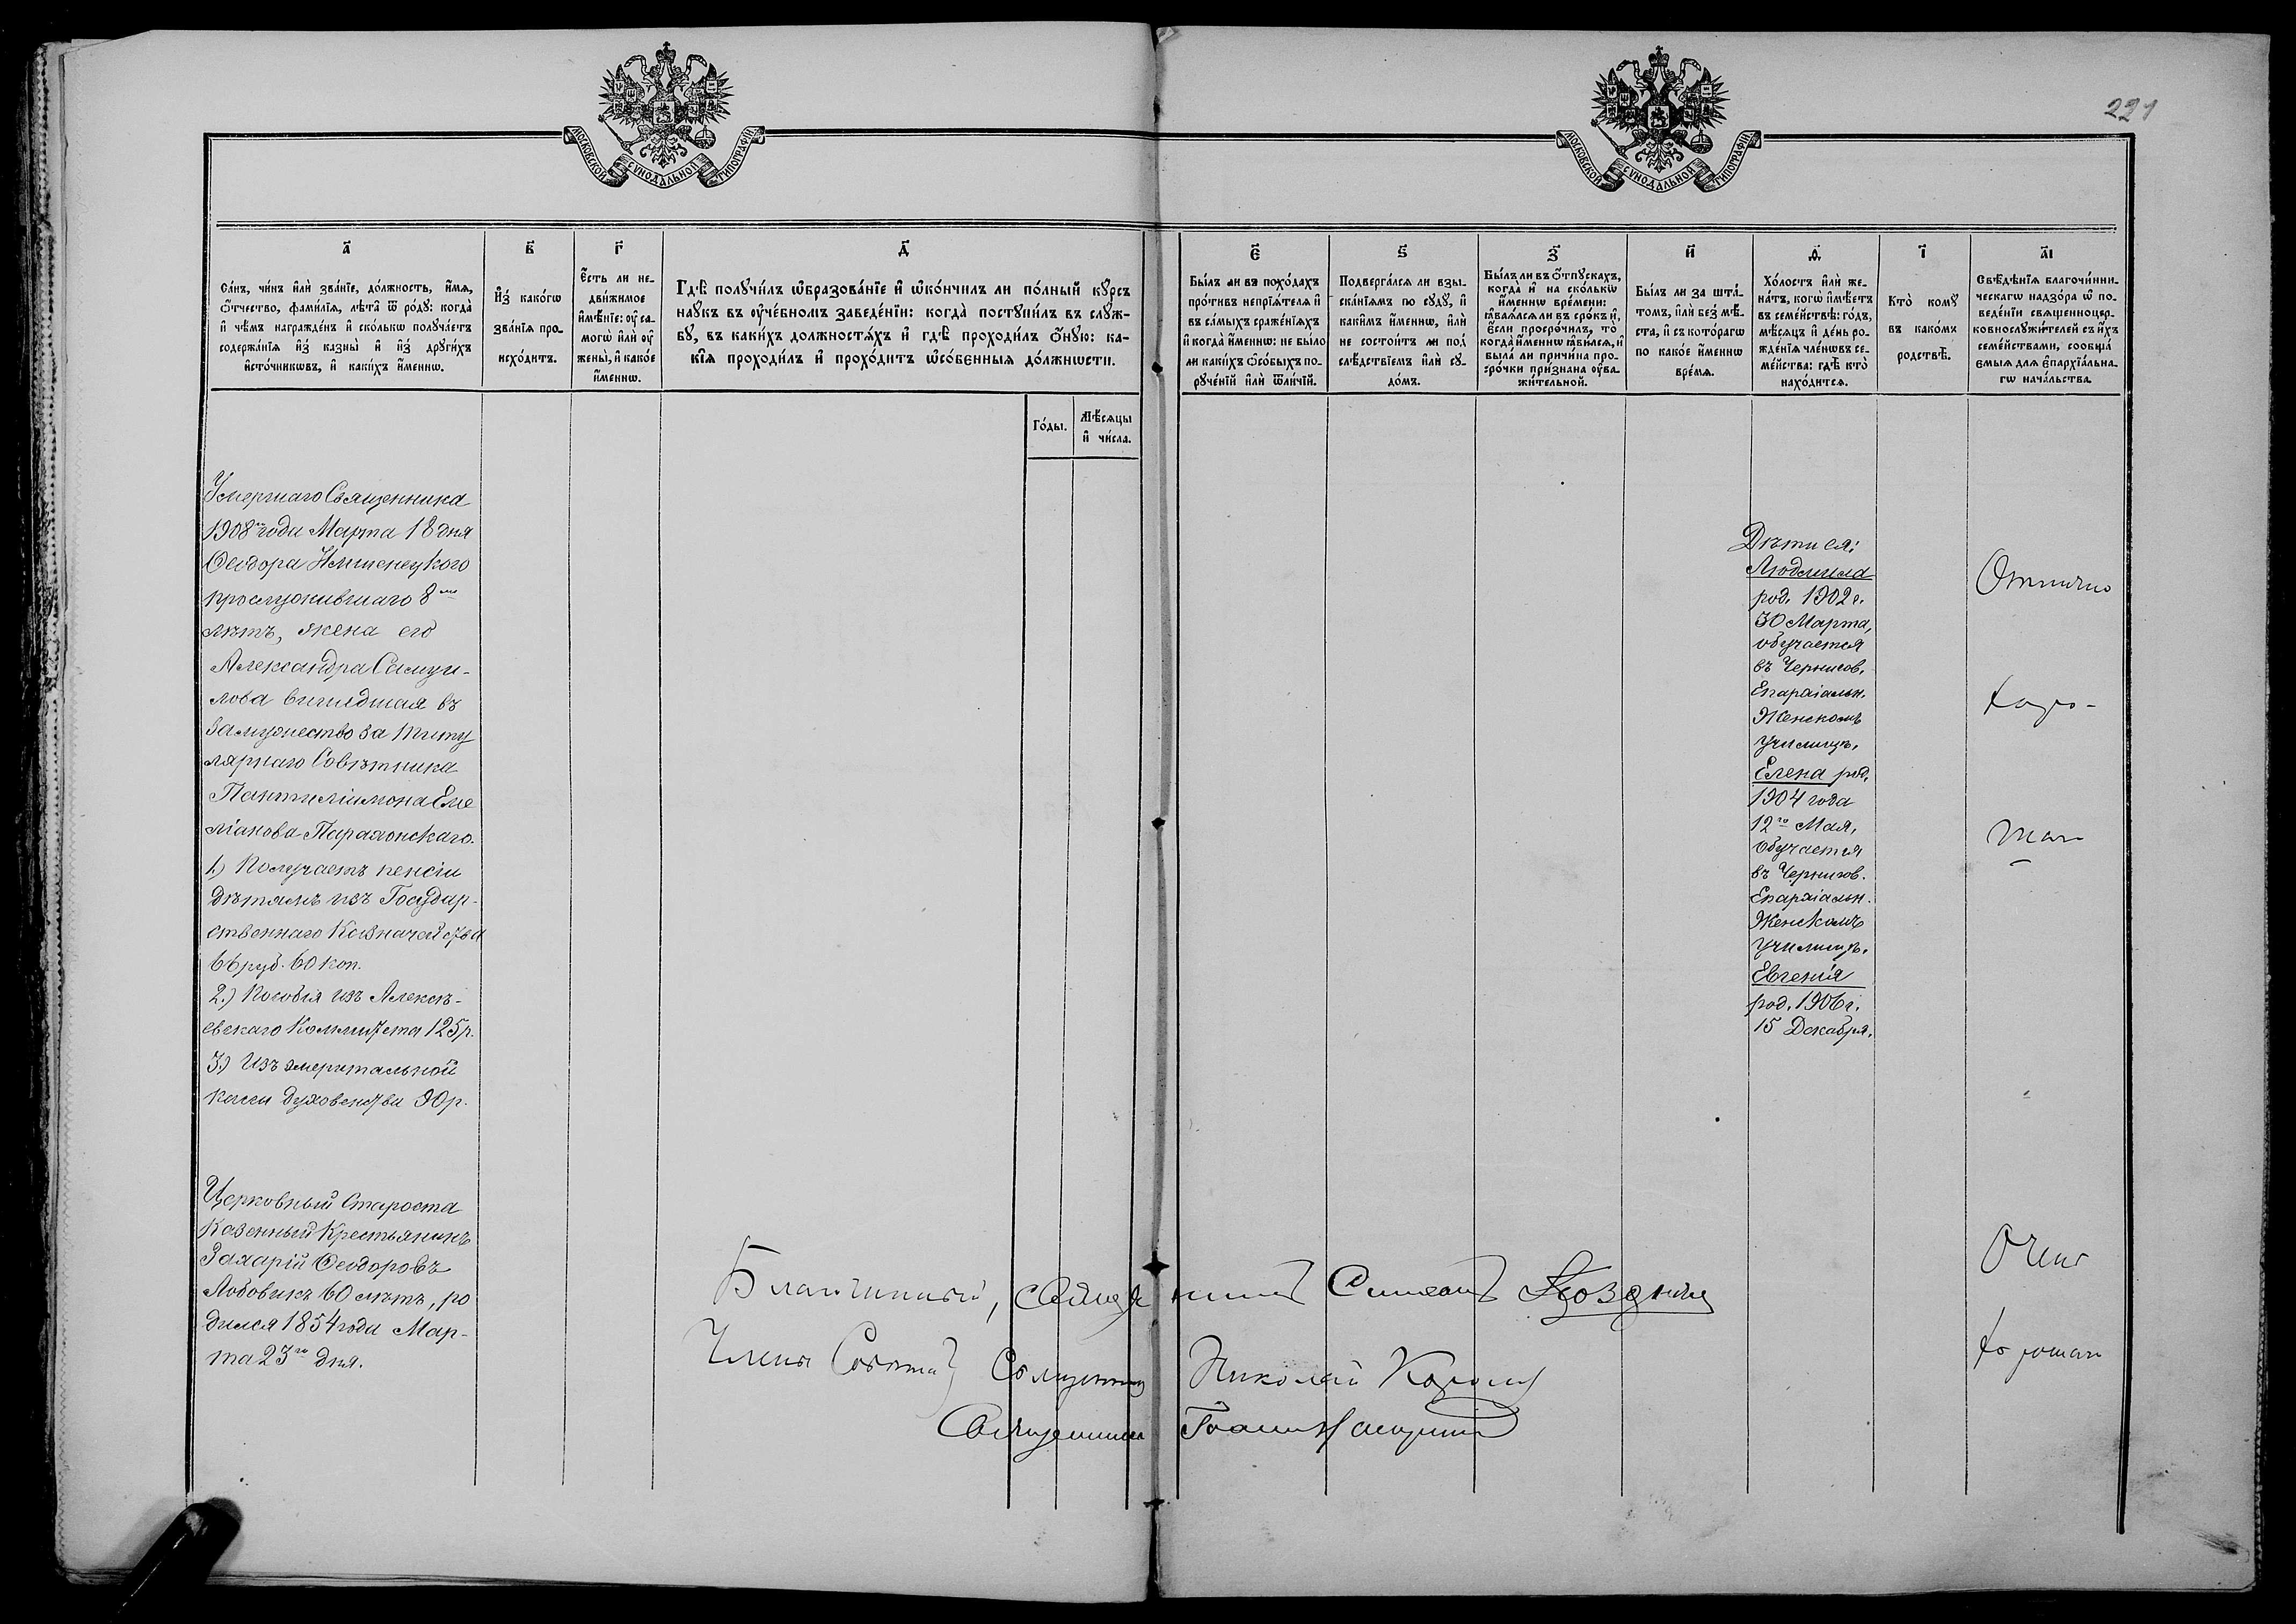 221
МОСКОВСКОЙ СѴНОДАЛЬНОЙ ТИПОГРАФІИ
МОСКОВСКОЙ СѴНОДАЛЬНОЙ ТИПОГРАФІИ
а҃
Са́нъ, чи́нъ и҆лѝ зва́нїе, до́лжность, и҆́мѧ,
ѻ҆́тчество, фами́лїѧ, лѣ́та ѿ ро́дꙋ: когда̀
и҆ чѣ́мъ награжде́нъ и҆ ско́лькѡ полꙋча́етъ
содержа́нїѧ и҆з̾ казны̀ и҆ и҆з̾ дрꙋги́хъ
и҆сто́чникѡвъ, и҆ каки́хъ и҆́меннѡ.
в҃
И҆з̾ како́гѡ
зва́нїѧ про-
исхо́дитъ.
г҃
Є҆́сть ли не-
дви́жимое
и҆мѣ́нїе: ᲂу҆ са-
могѡ̀ и҆лѝ ᲂу҆
жены̀, и҆ како́е
и҆́меннѡ.
д҃
Гдѣ̀ полꙋчи́лъ ѡ҆бразова́нїе и҆ ѡ҆ко́нчилъ ли по́лный кꙋ́рсъ
наꙋ́къ въ ᲂу҆че́бномъ заведе́нїи: когда̀ постꙋпи́лъ въ слꙋ́ж-
бꙋ, въ каки́хъ до́лжностѧхъ и҆ гдѣ̀ проходи́лъ ѻ҆́нꙋю: ка-
кі́ѧ проходи́лъ и҆ прохо́дитъ ѡ҆со́бенныѧ до́лжности.
Го́ды.
Мѣ́сѧцы
и҆ чи́сла.
є҃
Бы́лъ ли въ похо́дахъ
про́тивъ непрїѧ́телѧ и҆
въ са́мыхъ сраже́нїѧхъ
и҆ когда̀ и҆́меннѡ: не бы́ло
ли каки́хъ ѻ҆со́быхъ по-
рꙋче́нїй и҆лѝ ѿли́чїй.
ѕ҃
Подверга́лсѧ ли взы-
ска́нїѧмъ по сꙋдꙋ̀, и҆
каки́мъ и҆́меннѡ, и҆лѝ
не состои́тъ ли под̾
слѣ́дствїемъ и҆лѝ сꙋ-
до́мъ.
з҃
Бы́лъ ли въ ѻ҆́тпꙋскахъ,
когда̀ и҆ на ско́лькѡ
и҆́меннѡ вре́мени:
ꙗ҆влѧ́лсѧ ли въ сро́къ и҆,
є҆́сли просро́чилъ, то̀
когда̀ и҆́меннѡ ꙗ҆ви́лсѧ, и҆
была̀ ли причи́на про-
сро́чки при́знана ᲂу҆ва-
жи́тельной.
и҃
Бы́лъ ли за шта́-
томъ, и҆лѝ без̾ мѣ́-
ста, и҆ съ кото́рагѡ
по како́е и҆́меннѡ
вре́мѧ.
ѳ҃
Хо́лостъ и҆лѝ же-
на́тъ, когѡ̀ и҆мѣ́етъ
въ семе́йствѣ: го́дъ,
мѣ́сѧцъ и҆ де́нь ро-
жде́нїѧ чле́нѡвъ се-
ме́йства: гдѣ̀ кто̀
нахо́дитсѧ.
і҃
Кто̀ комꙋ̀
въ како́мъ
родствѣ̀.
а҃і
Свѣ́дѣнїѧ благочи́нни-
ческагѡ надзо́ра ѡ҆ по-
веде́нїи свѧщенноцер-
ковнослꙋжи́телей съ и҆́хъ
семе́йствами, сообща́-
ємыѧ длѧ є҆парχїа́льна-
гѡ нача́льства.
Умершаго Священника
1908го года Марта 18 дня
Ѳеодора Имшенецкого
прослужившаго 8ми
лѣтъ, жена его
Александра Самуи-
лова вишедшая въ
замужество за титу
лярнаго Совѣтника
Пантиліимона Еме
ліанова Параѳонскаго.
1.) Получаетъ пенсіи
дѣтямъ изъ Государ-
ственнаго Козначейства
66 руб. 60 коп.
2.) Пособія изъ Алексѣ-
евскаго Коммитета 125 р.
3.) Изъ эмеритальной
кассы духовенства 90 р.
Церковный Староста
Казенный Крестьянинъ
Захарій Ѳеодоровъ
Лобовикъ 60 лѣтъ, ро
дился 1854 года Мар-
та 23го дня.
Дѣти ея:
Людмила
род. 1902 г.
30 Марта,
обучается
въ Чернигов.
Епархіальн.
Женскомъ
Училищѣ.
Елена род.
1904 года
12го Мая,
обучается
въ Чернигов.
Епархіальн.
Женскомъ
Училищѣ.
Евгенія
род. 1906 г.
15 Декабря.
Отлично
Хоро-
шаго
Очень
Хорошаго
Благочинный, Священникъ Симеонъ
Члены Совѣта Священникъ Николай
Священникъ Іоаннъ